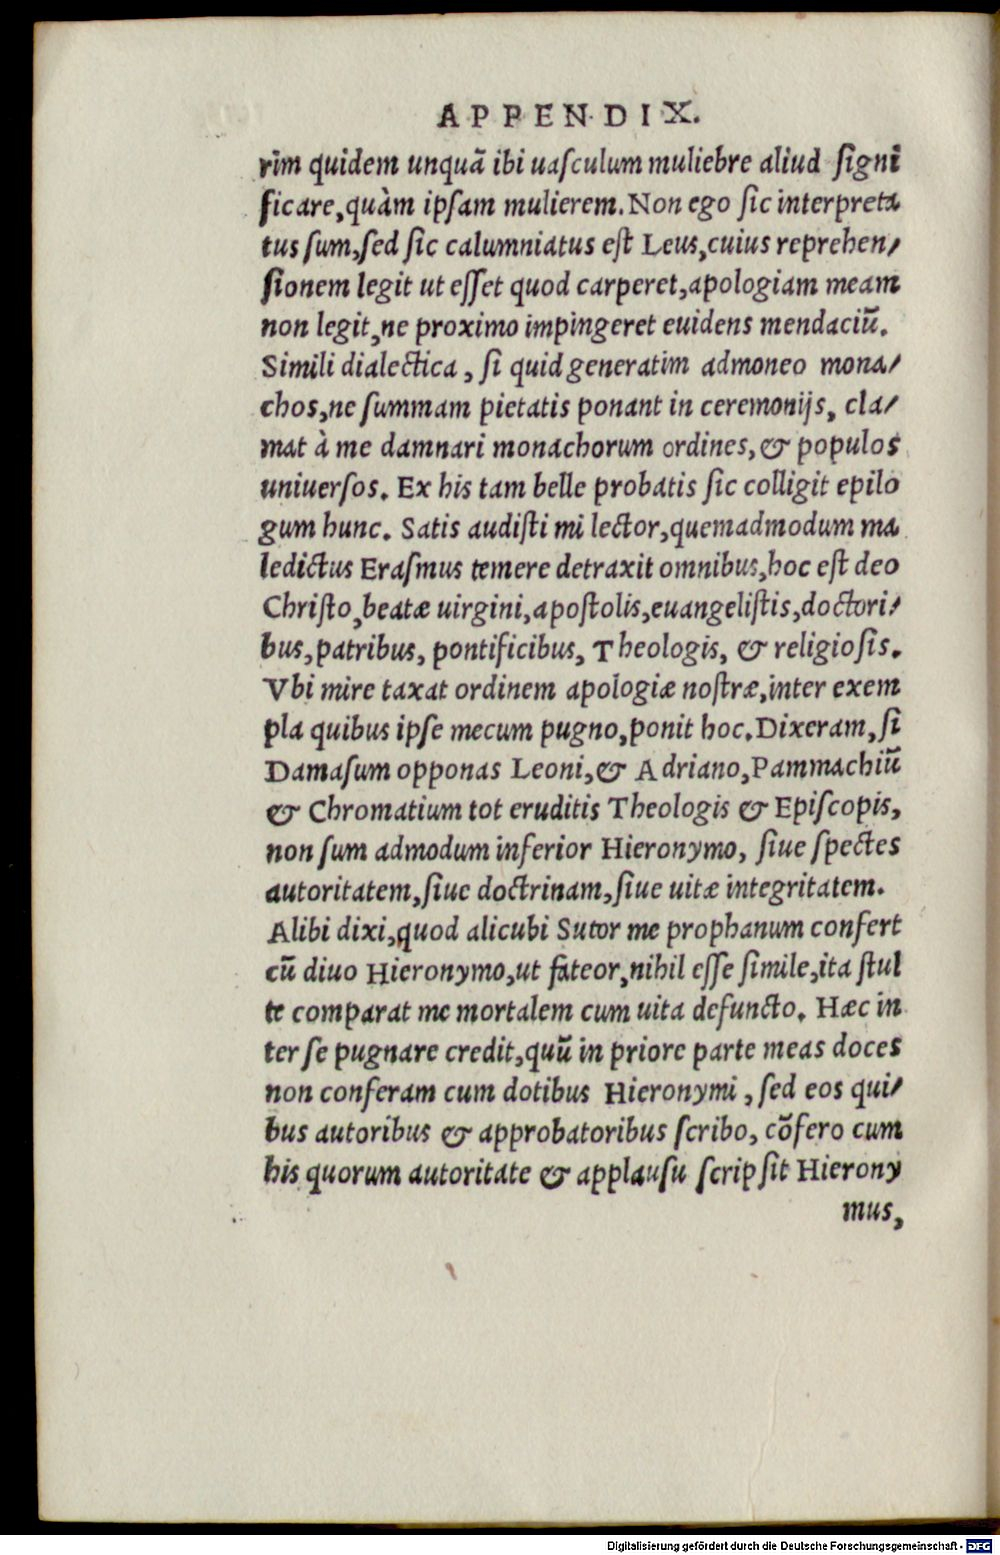 APPENDIX.
rim quidem unquã ibi uaſculum muliebre aliud ſigni
ficare, quàm ipſam mulierem. Non ego ſic interpreta
tus ſum, ſed ſic calumniatus eſt Leus, cuius reprehen/
ſionem legit ut eſſet quod carperet, apologiam meam
non legit, ne proximo impingeret euidens mendaciũ.
Simili dialectica, ſi quid generatim admoneo mona/
chos, ne ſummam pietatis ponant in ceremonijs, cla/
mat à me damnari monachorum ordines, & populos
uniuerſos. Ex his tam belle probatis ſic colligit epilo
gum hunc. Satis audiſti mi lector, quemadmodum ma
ledictus Eraſmus temere detraxit omnibus, hoc eſt deo
Chriſto, beatæ uirgini, apoſtolis, euangeliſtis, doctori/
bus, patribus, pontificibus, Theologis, & religioſis.
Vbi mire taxat ordinem apologiæ noſtræ, inter exem
pla quibus ipſe mecum pugno, ponit hoc. Dixeram, ſi
Damaſum opponas Leoni, & Adriano, Pammachiũ
& Chromatium tot eruditis Theologis & Epiſcopis,
non ſum admodum inferior Hieronymo, ſiue ſpectes
autoritatem, ſiue doctrinam, ſiue uitæ integritatem.
Alibi dixi, quod alicubi Sutor me prophanum confert
cũ diuo Hieronymo, ut fateor, nihil eſſe ſimile, ita ſtul
te comparat me mortalem cum uita defuncto. Hæc in
ter ſe pugnare credit, quũ in priore parte meas doces
non conferam cum dotibus Hieronymi, ſed eos qui/
bus autoribus & approbatoribus ſcribo, cõfero cum
his quorum autoritate & applauſu ſcripſit Hierony
mus,
Digitalisierung gefördert durch die Deutsche Forschungsgemeinschaft - DFG